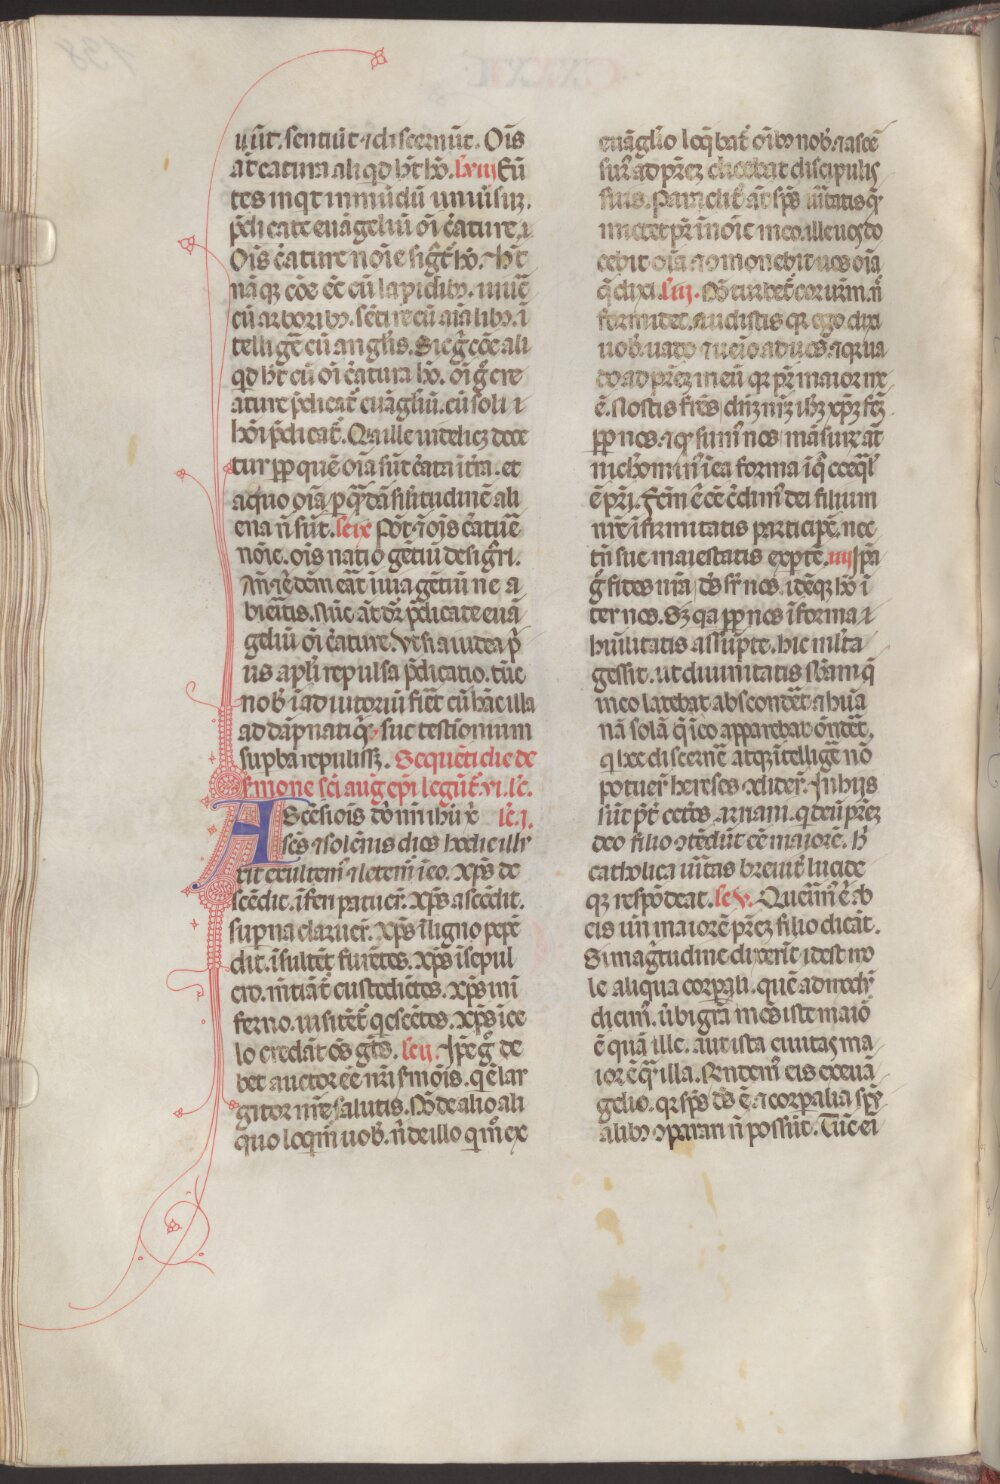 uūt. sentiūt ⁊ discernūt. Oīs
at̄ catura aliqd h̄t hō. l̄viii Eū
tes inqt in mūdū unūsuꝫ.
p̄dicate euāgeliū oī c̄ature.
Oīs c̄ature noīe sigt̄ hō. h̄t
nāqꝫ cōe eē cū lapidibꝫ. uiuē
cū arboribꝫ. sētire cū aīalibꝫ. ī
telligē cū anglis. Si g̊ cōe ali
qd h̄t cū oī c̄atura hō. oī g̊ cre
ature p̄dicat̄ euāgliū. cū soli
hōi p̄dicat̄. Quia ille uidelicꝫ doce
tur ꝓp quē oīa sūt c̄ata ī tr̄a. et
a quo oīa p qͣdā siłitudinē ali
ena n̄ sūt. le ix Pōt ⁊ ōis c̄atue
nōīe. oīs natio gētiū designri.
An̄ ⁊ē dcm̄ eāt ī uia gētiū ne a
bieritis. Nūc at̄ dr̄ p̄dicate euā
geliū oī c̄ature. Ut s̄ a iudea p̄
us apłr̄ repulsa p̄dicatio. tūc
nob̄ ī adiutoriū fiēt cū hāc illa
ad dāpnatiōꝫ sue testīonium
supba repulissꝫ. Sequēti die de
smone sc̄i aug epi legūt̄. vi. lc̄.
Ascēsiois dn̄i nri ihū x̄ lc̄. i.
scs ⁊ solēnis dies hodie illu
xit exultem̄ ⁊ letem̄ ī eo. xp̄s de
scēdit. īferi patuer̄. xp̄s ascēdit.
supna claruer̄. xp̄s ī ligno pepē
dit. īsultēt furētes. xp̄s ī sepul
cro. mētiāt̄ custodiētes. xp̄s in ī
ferno. uisitēt̄ qescētes. xp̄s ī ce
lo credāt ōs gt̄s. le ii. Ipē g̊ de
bet auctor eē nr̄i smōis. qē lar
gitor nr̄e salutis. Nō de alio ali
quo loqm̄ uob̄. n̄ de illo qm̄ ex
euāglio loq̄bat̄ oībꝫ nob̄. ⁊ ascē
sur̄ ad pr̄eꝫ dicebat discipulis
suis. Paraclit̄ at̄ sp̄s uītatis qͦ
mittet pr̄ ī noīe meo. ille uos do
cebit oīa ⁊ ōmonebit uos oīa
q̄ dixi. l̄ iii. Nō turbet̄ cor ur̄m. n̄
formidet. audistis qr ego dixi
uob̄. uado ⁊ uēio ad uos. ⁊ qr ua
do ad pr̄eꝫ meū qr pr̄ maior me
ē. Nostis fr̄es dn̄ꝫ nr̄ꝫ ihꝫ xp̄ꝫ fc̄ꝫ
ꝓp nos. ⁊ qͦ sum̄ nos mansurꝫ at̄
nichomin̄ ī ea forma ī qͣ coeqͣl̄
ē pr̄i. Fc̄m ē ēē c̄dim̄ dei filium
nr̄e īfirmitatis participē. nec
tn̄ sue maiestatis exptē. iiii Ipā
g̊ fides nr̄a ds̄ sr̄ nos. idēqꝫ hō ī
ter nos. Sꝫ qa ꝓp nos ī forma
hūilitatis assūpte. hic mlta
gessit. ut diuinitatis sb̄am q̄
in eo latebat absconde͞t ⁊ huā
nā solā q̄ ī eo apparebat onde͞t.
q hec discernē atqꝫ ītelligē nō
potuer̄ hereses ⁊dider̄. In hijs
sūt p̄t̄ cetos ⁊rriani. q deū pr̄eꝫ
deo filio ⁊tēdūt eē maiorē. h̄
catholica uītas breuit̄ lucide
qꝫ respōdeat. le v. Quem̄ ē ab
eis un̄ maiorē pr̄eꝫ filio dicāt.
Si magͥtudine dixerīt idest mo
le aliqua corpali. quē admod̄
dicim̄. ūbi grā mōs iste maiō
ē quā ille. aut ista ciuitas ma
ior ē qͣ illa. Rn̄dem̄ eis ex euā
gelio. qr sp̄s ds̄ ē ⁊ corpalia sp̄
alibꝫ ⁊parari n̄ possūt. Tūc ei